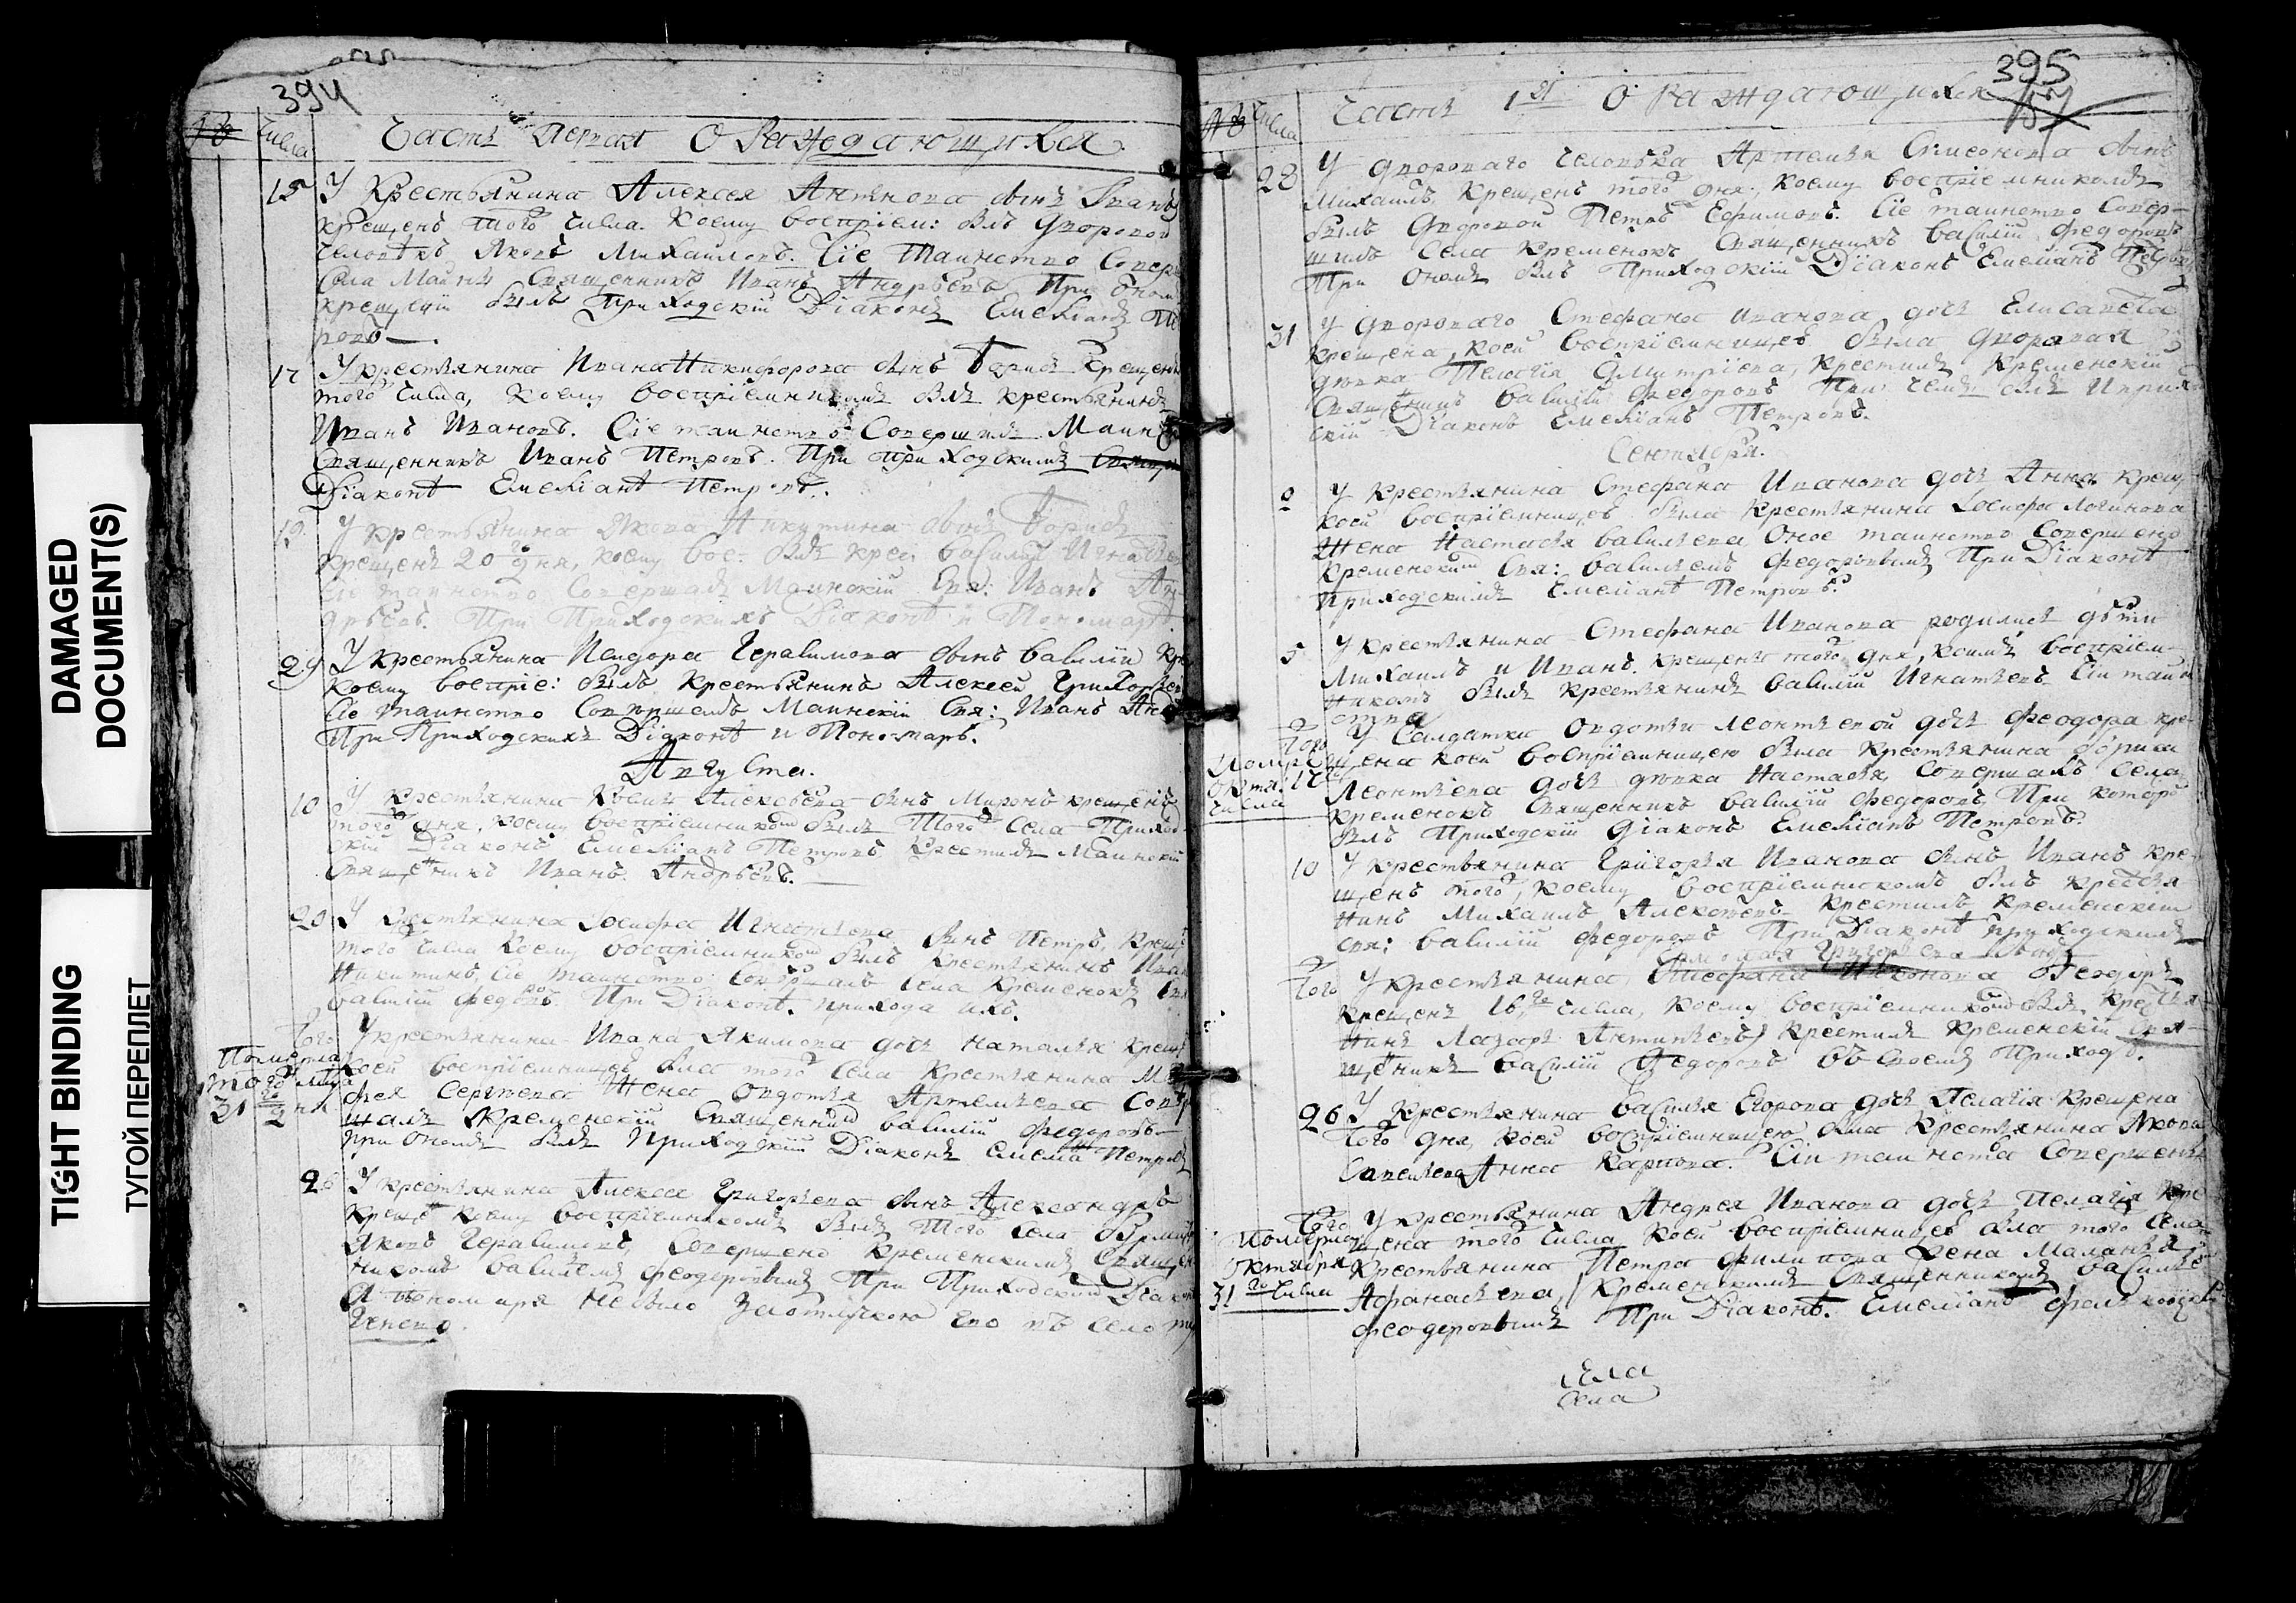 DAMAGED
DOCUMENT(S)
TIGHT BINDING
ТУГОЙ ПЕРЕПЛЕТ
394
Числа Часть первая О Раждающихся
15 У Крестьянина Алексея Антонова сынъ Иванъ
крещенъ того числа. Коему воспріем: былъ дворовой
человѣкъ Яковъ Михаиловъ. Сіе Таинство Совер
Села Маинъ Священникъ Иванъ Андрѣевъ При ономъ
крещеніи былъ Приходскій Діаконъ Емеліанъ Пе
ровъ
17 У крестьянина Ивана Никифорова сынъ Борисъ Крещенъ
того числа, коему воспріемникомъ былъ крестьянинъ
Иванъ Ивановъ. Сіе таинство Совершилъ Маин
Священникъ Иванъ Петровъ. При приходскимъ
Діаконѣ Емеліанѣ Петровѣ.
19. У крестьянина Якова Никитина сынъ Борисъ
крещенъ 20 го дня, коему вос: былъ крес: Василій Игнатьев
Сіе таинство Совершалъ Маинскій Свя: Иванъ Ан
дрѣевъ. При Приходскихъ Діаконѣ и Пономарѣ
29 У крестьянина Исидора Герасимова сынъ Василій кре
коему воспріе: былъ крестьянинъ Алексей Григорьев
Сіе таинство Совершалъ Маинскій Свя: Иванъ Анд
При Приходскихъ Діаконѣ и Пономарѣ.
Августа.
10 У крестьянина Косьмы Алексѣева сынъ Миронъ крещенъ
того дня, коему воспріемникомъ былъ того Села Приход
скій Діаконъ Емеліанъ Петровъ Крестилъ Маинскій
Священникъ Иванъ Андрѣевъ.
20 У крестьянина Іосифа Игнатьева сынъ Петръ, крещ
того числа коему воспріемникомъ былъ Крестьянинъ Иван
Никитинъ, сіе таинство совершалъ Села Кременокъ Свя
Василій Федоровъ. При Діаконѣ прихода ихъ.
Того У крестьянина Ивана Якимова дочь Наталья крещ
Померла
того м-ца
31 го дня
коей воспріемницею была того Села крестьянина Ма
фея Сергѣева Жена Овдотья Артемьева Совер
шалъ Кременскій Священникъ Василій Федоровъ
при ономъ былъ Приходскій Діаконъ Емеліа Петровъ
26 У крестьянина Алексея Григорьева сынъ Александръ
крещенъ коему воспріемникомъ былъ того Села
Яковъ Герасимовъ, Совершено Кременскимъ Священ
никомъ Василіемъ Феодоровымъ При Приходскомъ Діак
А пономаря небыло За отлучкою Его въ Село

395
Числа Часть 1 я О Раждающихся
28 У двороваго Человѣка Артемья Симеонова сынъ
Михаилъ, Крещенъ того дня, коему воспріемникомъ
былъ дворовой Петръ Ефимовъ. Сіе таинство Совер
шилъ Села Кременокъ Священникъ Василій Федоровъ
При ономъ былъ Приходскій Діаконъ Емеліанъ Петровъ
31 У двороваго Стефана Иванова дочь Елисавета
Крещена, коей воспріемницею была дворовая
дѣвка Пелагія Дмитріева, крестилъ Кременскій
Священникъ Василій Федоровъ При чемъ былъ и прихо
скій Діаконъ Емеліанъ Петровъ.
Сентября.
У Крестьянина Стефана Иванова дочь Анна крещ
коей воспріемницею была Крестьянина Іосифа Логинова
Жена Настасья Васильева Оное таинство Совершено
Кременскимъ Свя: Васильемъ Федоровымъ При Діаконѣ
приходскимъ Емеліанѣ Петровѣ.
5 У крестьянина Стефана Иванова родились дѣти
Михаилъ и Иванъ. крещены того дня, коимъ воспріем
никомъ былъ крестьянинъ Василій Игнатьевъ Сіи таин
ства
Того У Салдатки Овдотьи Леонтьевой дочь Феодора кре
Померла
октя: 17
числа
щена коей воспріемницею была крестьянина Бориса
Леонтьева дочь дѣвка Настасья, Совершалъ Села
Кременокъ Священникъ Василій Федоровъ, При которо
былъ Приходскій Діаконъ Емеліанъ Петровъ.
10 У крестьянина Григорья Иванова сынъ Иванъ кре
щенъ того, коему воспріемникомъ былъ крестья
нинъ Михаилъ Алексѣевъ крестилъ Кременскій
Свя: Василій Федоровъ При Діаконѣ приходскимъ
Того У крестьянина Феодоръ
крещенъ 16, го числа, коему воспріемникомъ былъ Крестья
нинъ Лазарь Антипьевъ, крестилъ Кременскій Свя
щенникъ Василій Федоровъ въ своемъ Приходѣ.
26 У крестьянина Василья Егорова дочь Пелагія крещена
того дня, коей воспріемницею была Крестьянина Якова
Савельева Анна Карпова. Сіи таинства Совершены
Того У крестьянина Андрея Иванова дочь Пелагія кре
Померла
октября
31 го числа
щена того числа, коей воспріемницею была того Села
Крестьянина Петра Филипова Жена Маланья
Афанасьева, Кременскимъ Священникомъ Василье
Феодоровымъ При Діаконѣ. Емеліанѣ
Села
Села